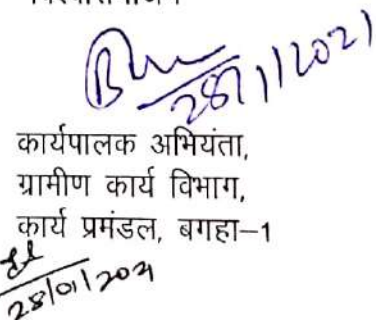 28/1/2021
कार्यपालक अभियंता,
ग्रामीण कार्य विभाग,
कार्य प्रमंडल, बगहा–1
28/01/2021